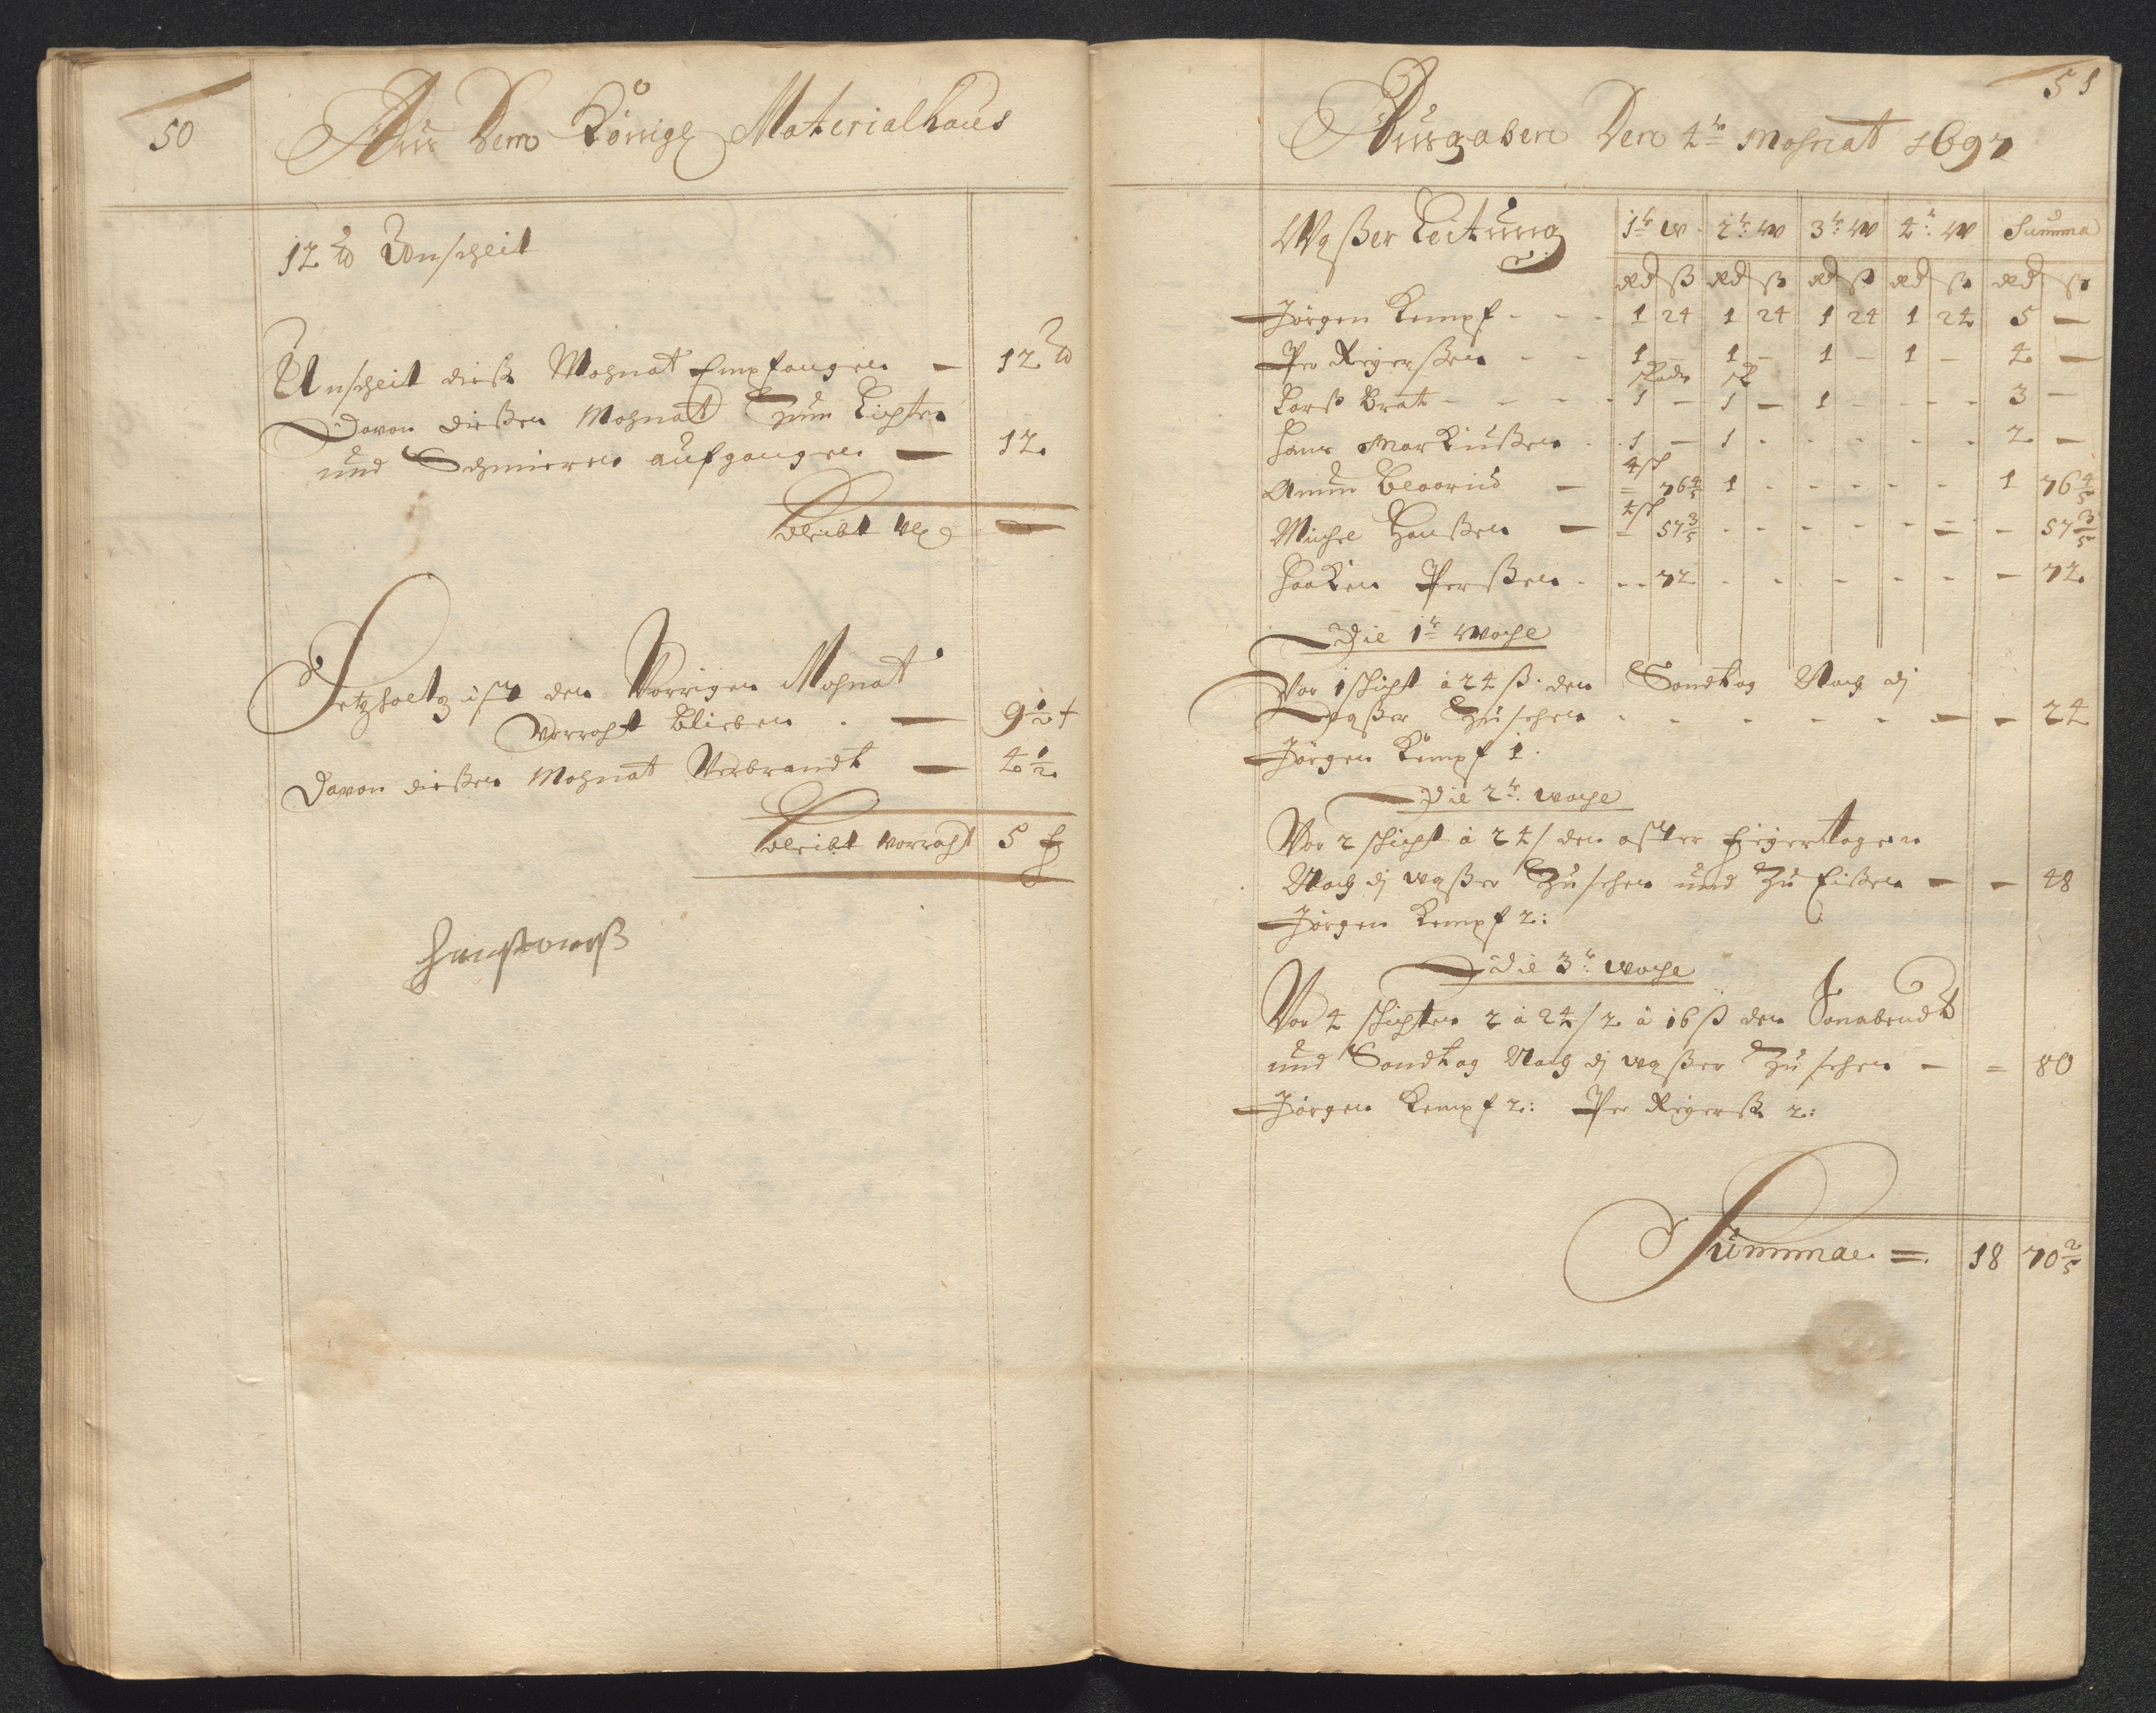 50
Aus Dem Königl Materialhaus
12 ℔ Unscheit
Unscheit dieß Mohnat Empfangen — 12 ℔
Davon dießen Mohnat Zum Lichten
und Schmieren aufgangen — 12
bleibt —
Setzholtz ist den Vorrigen Mohnat
Vorraht blieben — 9 1/2 f
Davon dießen Mohnat Verbrandt — 4 1/2
bleibt Vorraht 5 f
51
Ausgaben Den 4te Mohnat 1697
Waßer Leitung 1te W 2te W 3te W 4te W Summa
Rd ß Rd ß Rd ß Rd ß Rd ß
Jörgen Kempf - - - 1 24 1 24 1 24 1 24 5 —
Per Reyerßen - - 1 — 1 — 1 — 1 — 4 —
Larß Brat - - - - 1 — 1 — 1 - - - 3 —
Hans Markußen - 1 — 1 - - - - - 2 —
4 sch
— = 76 4/5 1 - - - - - 1 76 4/5
4 sch
Michel Hanßen — — 57 3/5 - - - - - — - 57 3/5
Haaken Perßen - - - 72 - - - - - — 72
Die 1te Woche
Vor 1 schicht à 24 ß den Sondtag Nach dj
Waßer Zu sehen - - - - - — — 24
Jörgen Kempf 1.
Die 2te Woche
Vor 2 schicht à 24 ß den oster feyertagen
Nach dj waßer Zu sehen und Zu Eißen — — 48
Jörgen Kempf 2:
Die 3te Woche
Vor 4 schichten 2 à 24 ß 2 à 16 ß den Sonabendt
und Sondtag Nach dj waßer Zu sehen — = 80
Jörgen Kempf 2: Per Reyerß 2:
Summa = 18 70 2/5